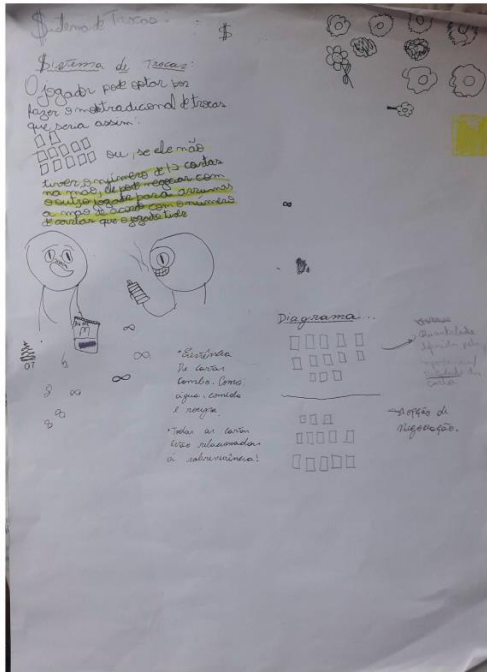 $istema de Trocas.
$
Sistema de Trocas:
O jogador pode optar por
fazer o modo tradicional de trocas
que seria assim:
ou, se ele não
tiver o número de 12 cartas
na mão, ele pode negociar com
o outro jogador para arrumar
a mão de acordo com o número
de cartas que o jogador tiver
M
∞
∞
∞
6
2 ∞
8
8
• Existência
De cartas
combo. Como
água, comida
e roupa.
• Todas as cartas
estão relacionadas
á sobrevivência!
∞
Diagrama...
Quantidade
carta
→ opção de
Negociação.